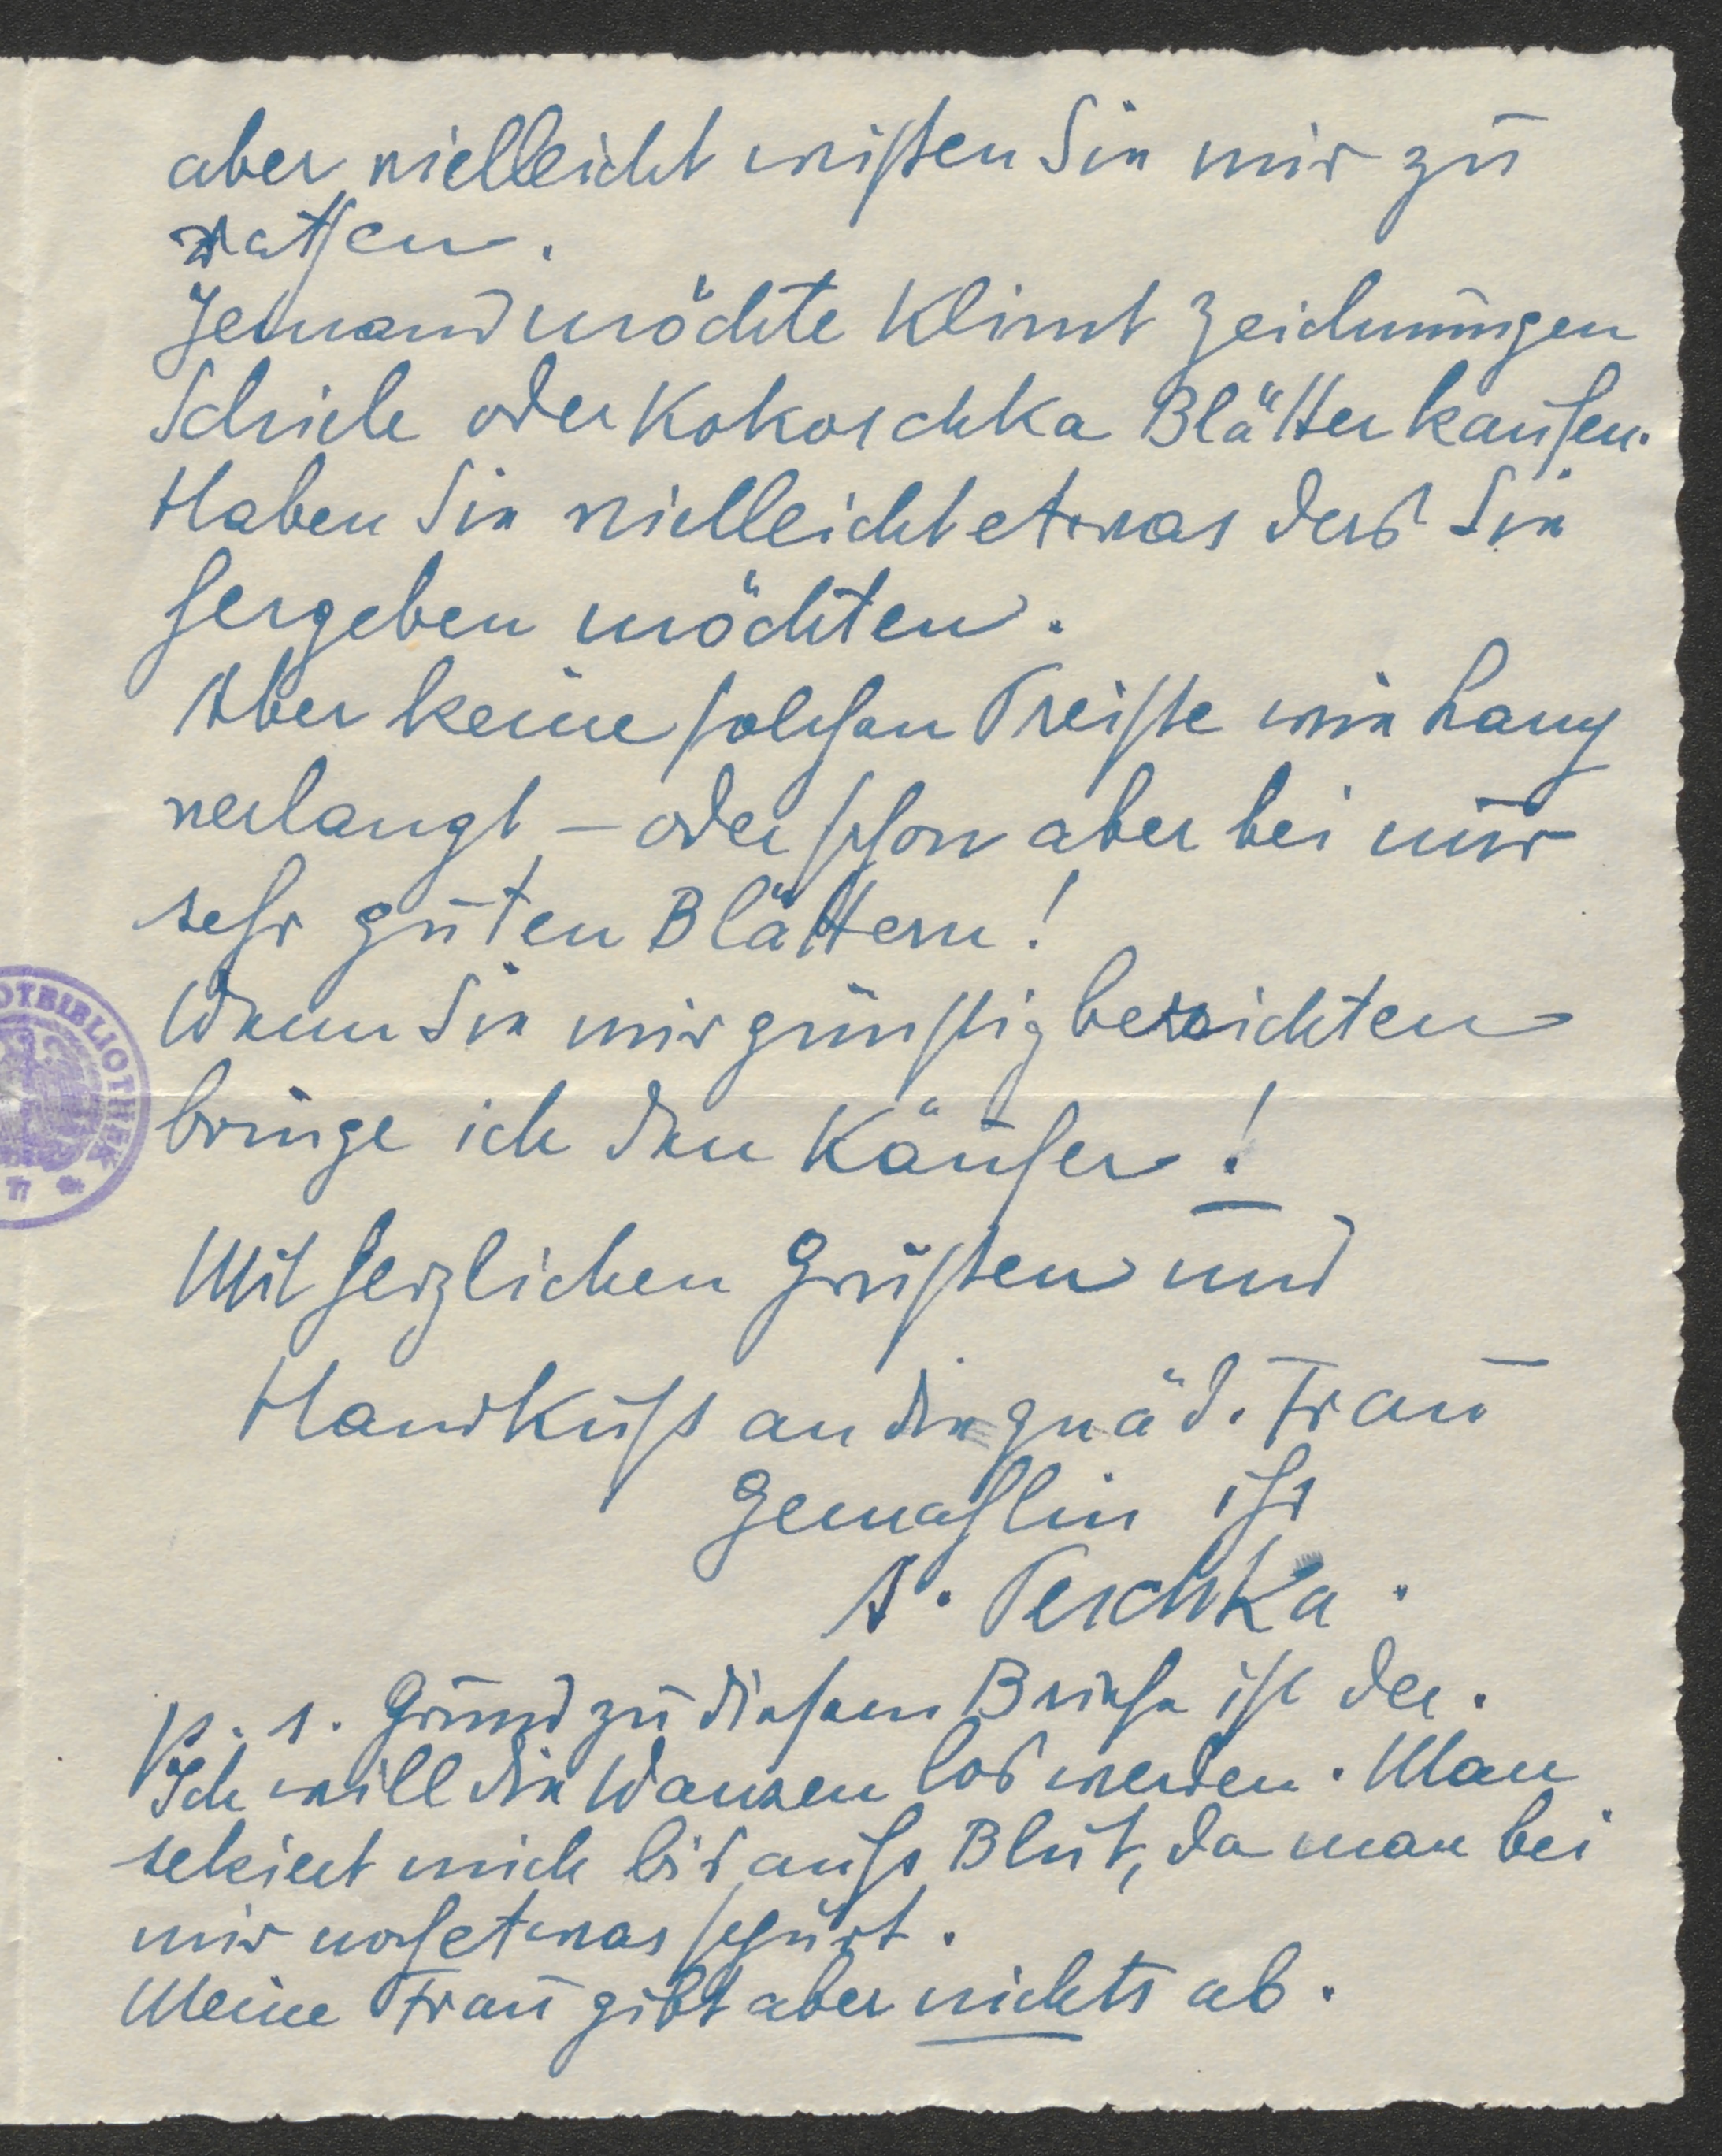 aber vielleicht wißten Sie mir zu
rathen.
Jemand möchte Klimt Zeichnungen
Schiele oder Kokoschka Blätter kaufen.
Haben Sie vielleicht etwas das Sie
hergeben möchten.
Aber keine solchen Preiße wie Lang
verlangt – oder schon aber bei nur
sehr guten Blättern!
Wenn Sie mir günstig berichten
bringe ich den Käufer!
Mit herzlichen Grüßen und
Handkuß an die gnäd. Frau
Gemahlin ihr
A. Peschka.
P. s. Grund zu diesem Briefe ist der.
Ich will die Wanzen los werden. Man
sekiert mich bis aufs Blut, da man bei
mir noch etwas spürt.
Meine Frau gibt aber nichts ab.
OTBIBLIOTHEK